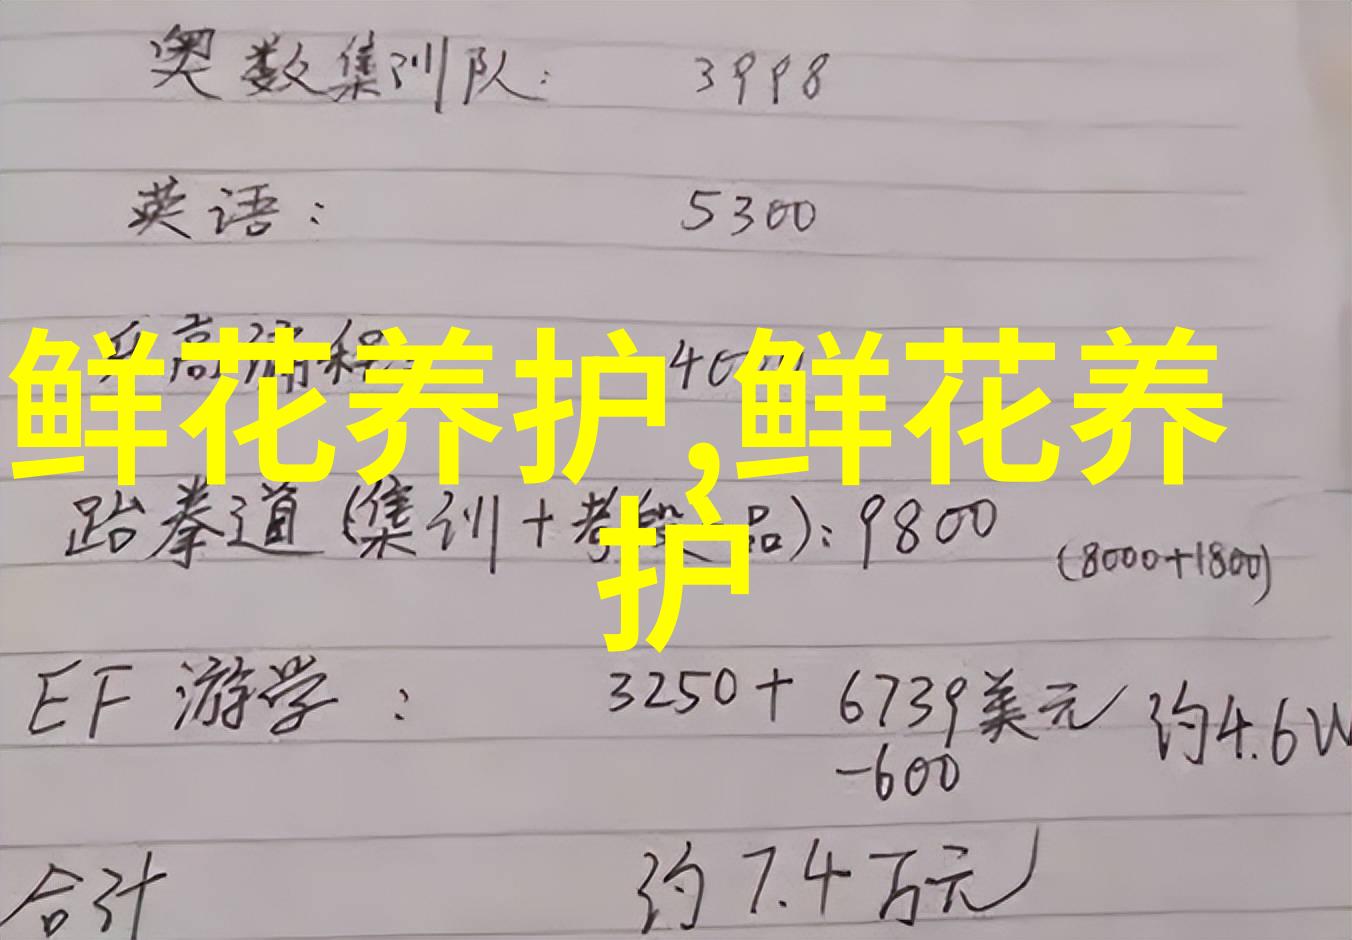 奥数集训队: 3998
英语: 5300
高编程 400
鲜花养护,鲜花养
护
跆拳道(集训+考段 品): 9800 (8000+1800)
EF 游学: 3250+ 6739美元 约4.6W
-600
合计 约7.4万元